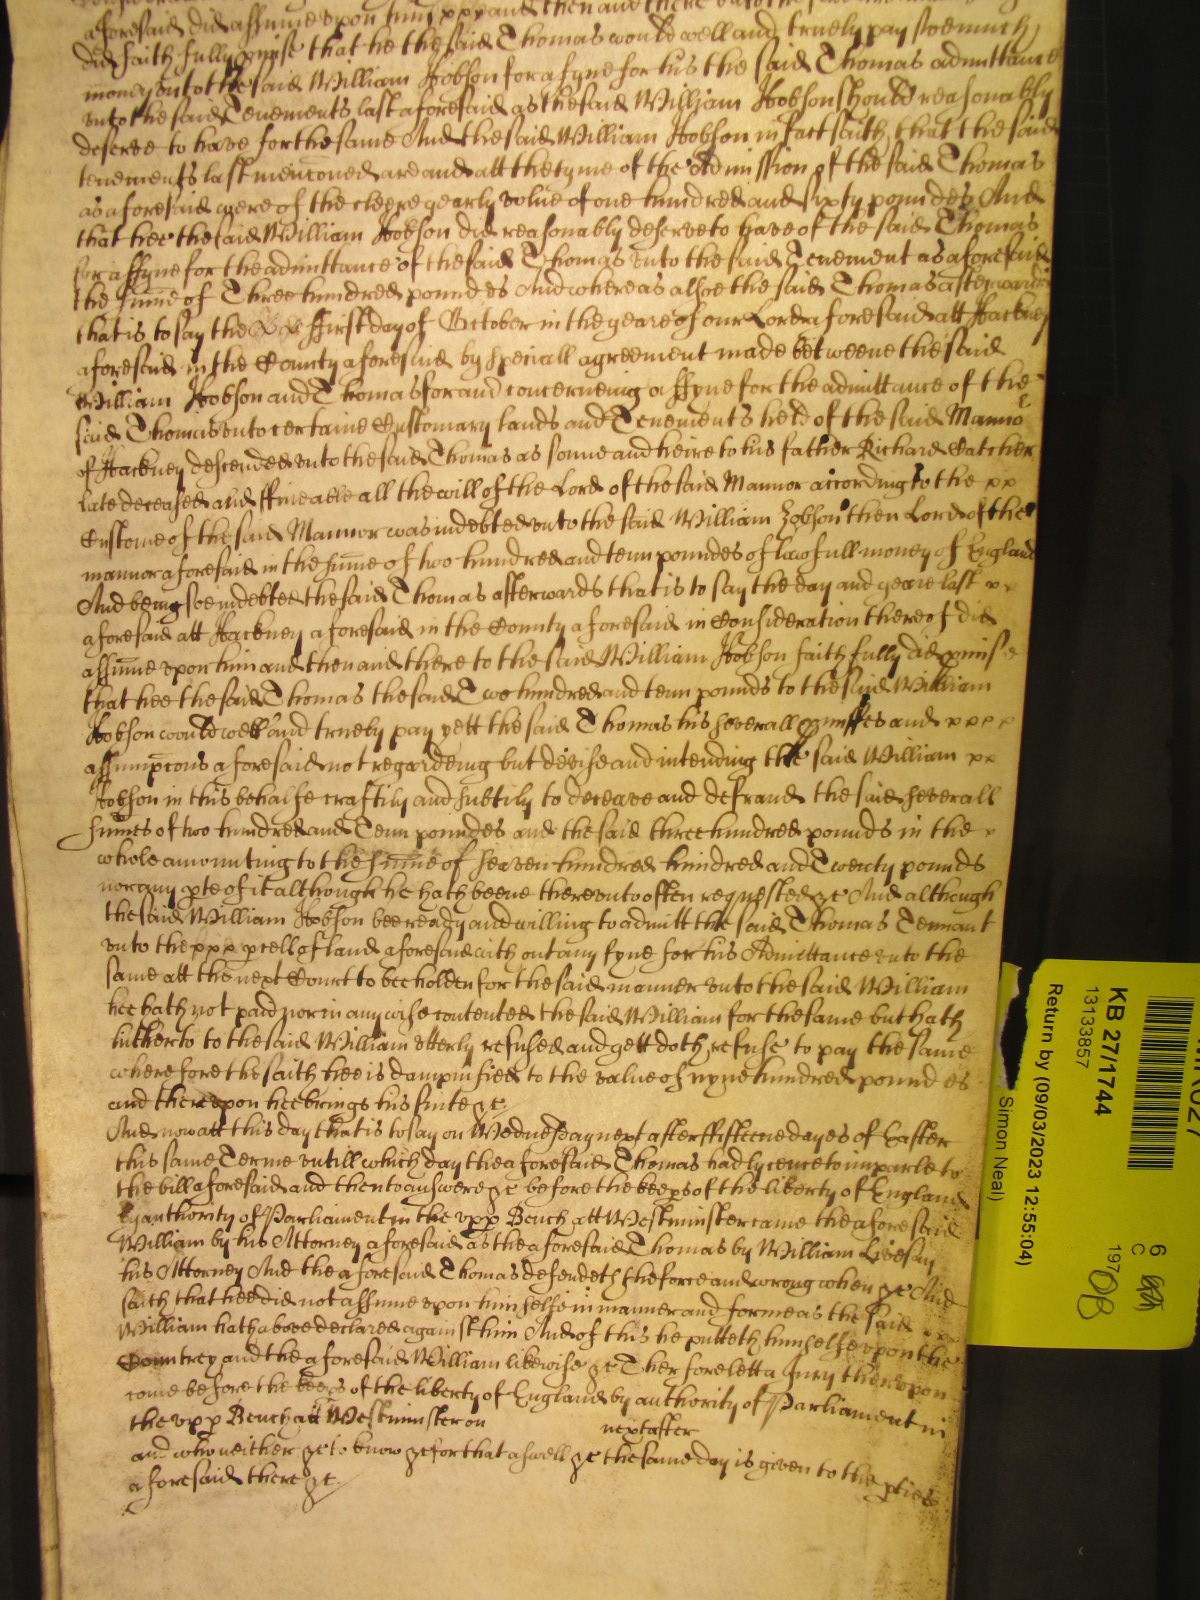 aforesaid did assume upon him xxx and then and there unto the said
did faith fully pmise that he the said Thomas would well and truely pay soe much
money unto the said William Hobson for a fyne for his the said Thomas admittance
unto the said Tenements last aforesaid as the said William Hobson should reasonably
deserve to have for the same And the said William Hobson in fact saith that the said
tenements last menconed are and att the tyme of the Admission of the said Thomas
as aforesaid were of the cleere yearly value of one hundred and sixty poundes And
that hee the said William Hobson did reasonably deserve to have of the said Thomas
for a ffyne for the admittance of the said Thomas unto the said Tenement as aforesaid
the sume of Three hundred poundes And whereas alsoe the said Thomas afterwards
that is to say the xx ffirst day of October in the yeare of our Lord aforesaid att Hackney
aforesaid in the County aforesaid by speciall agreement made betweene the said
William Hobson and Thomas for and concerneing a ffyne for the admittance of the
said Thomas unto certaine Customary lands and Tenements held of the said Manno r
of Hackney descended unto the said Thomas as sonne and heire to his father Richard Catcher
late deceased and ffineable all the will of the Lord of the said Mannor according to the xx
Custome of the said Mannor was indebted unto the said William Hobson then Lord of the
mannor aforesaid in the sume of two hundred and tenn poundes of lawfull money of England
And being soe indebted the said Thomas afterwards that is to say the day and yeare last xx
aforesaid att Hackney aforesaid in the County aforesaid in Consideration thereof did
assume upon him and then and there to the said William Hobson faithfully did pmise
that hee the said Thomas the said Two hundred and tenn pounds to the said William
Hobson would well and truely pay yett the said Thomas his severall pmisses and xxxx
assumpcons aforesaid not regardeing but devise and intending the said William xx
Hobson in this behalfe craftily and subtily to deceave and defraud the said severall
sumes of two hundred and Tenn poundes and the said three hundred pounds in the x
whole amounting to the sume of seaven hundred hundred and Twenty pounds
nor any pte of it although he hath beene thereunto often requested &c And although
the said William Hobson bee ready and willing to admitt the said Thomas Tennant
unto the xxxx pcell of land aforesaid with out any fyne for his Admittance unto the
same att the next Court to bee holden for the said manner unto the said William
hee hath not paid nor in any wise contented the said William for the same but hath
hitherto to the said William utterly refused and yett doth refuse to pay the same
wherefore the saith hee is dampnified to the value of nyne hundred poundes
and thereupon hee brings his suite &c
And now att this day that is to say on Wednesday next after ffifteene dayes of Easter
this same Terme untill which day the aforesaid Thomas had lycence to imparle to
the bill aforesaid and then to answere &c before the keeps of the liberty of England
by authority of Parliament in the upp Bench att Westminster came the aforesaid
William by his Attorney aforesaid as the aforesaid Thomas by William Livesay
his Attorney And the aforesaid Thomas defendeth the force and wrong when &c And
saith that hee did not assume upon himselfe in manner and forme as the said xxx
William hath above declared against him And of this he putteth himselfe upon the
Countrey and the aforesaid William likewise &c Therfore lett a Jury thereupon
come before the keeps of the liberty of England by authority of Parliament in
the upp Bench att Westminster on next after
and who neither &c to know &c for that aswell &c the same day is given to the pties
aforesaid there &c
KB 27/1744
13133857
Return by (09/03/2023 12:55:04)
Simon Neal)
6
C
197